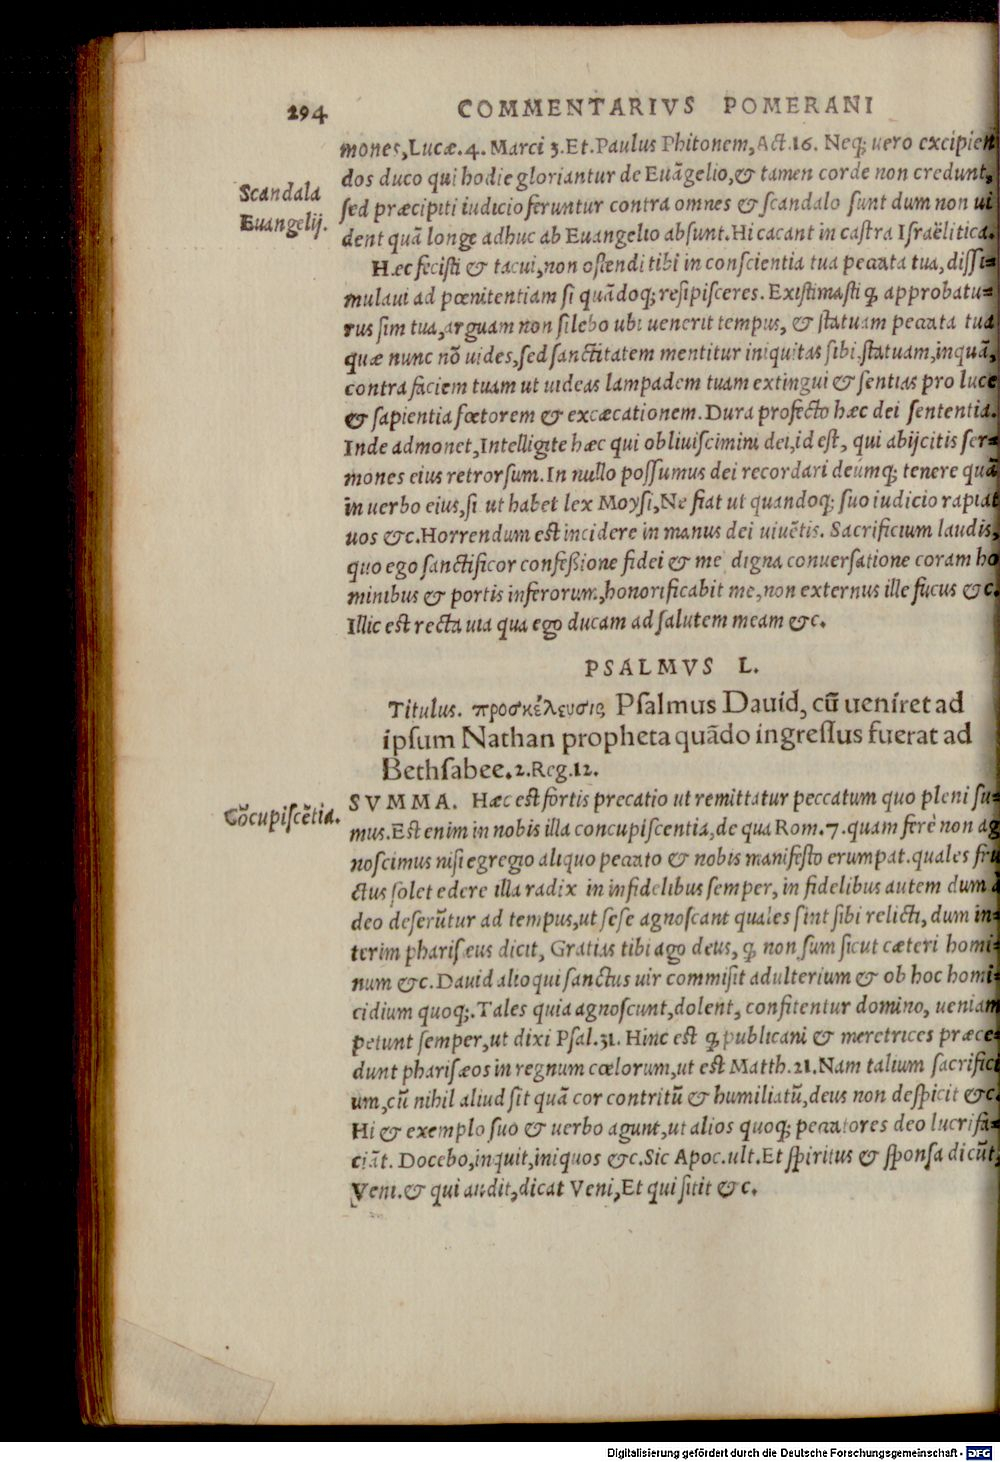 294 COMMENTARIVS POMERANI
mones, Lucæ. 4. Marci 3. Et. Paulus Phitonem, Act. 16. Neq; uero excipien
dos duco qui hodie gloriantur de Euãgelio, & tamen corde non credunt,
Scandala
Euangelij.
sed præcipiti iudicio feruntur contra omnes & scandalo sunt dum non ui
dent quã longe adhuc ab Euangelio absunt. Hi cacant in castra Israëlitica.
Hæc fecisti & tacui, non ostendi tibi in conscientia tua peccata tua, dissi-
mulaui ad pœnitentiam si quãdoq; resipisceres. Existimasti ꝙ approbatu-
rus sim tua, arguam non silebo ubi uenerit tempus, & statuam peccata tua
quæ nunc nõ uides, sed sanctitatem mentitur iniquitas sibi, statuam, inquã,
contra faciem tuam ut uideas lampadem tuam extingui & sentias pro luce
& sapientia fœtorem & excæcationem. Dura profecto hæc dei sententia.
Inde admonet, Intelligite hæc qui obliuiscimini dei, id est, qui abijcitis ser-
mones eius retrorsum. In nullo possumus dei recordari deúmq; tenere quã
in uerbo eius, si ut habet lex Moysi, Ne fiat ut quandoq; suo iudicio rapiat
uos &c. Horrendum est incidere in manus dei uiuẽtis. Sacrificium laudis,
quo ego sanctificor confeßione fidei & me digna conuersatione coram ho
minibus & portis inferorum, honorificabit me, non externus ille fucus &c.
Illic est recta uia qua ego ducam ad salutem meam &c.
PSALMVS L.
Titulus. προσκέλευσις Psalmus Dauid, cũ ueniret ad
ipsum Nathan propheta quãdo ingressus fuerat ad
Bethsabee. 2. Reg. 12.
Cõcupiscẽtia.
SVMMA. Hæc est fortis precatio ut remittatur peccatum quo pleni su-
mus. Est enim in nobis illa concupiscentia, de qua Rom. 7. quam ferè non ag
noscimus nisi egregio aliquo peccato & nobis manifesto erumpat. quales fru
ctus solet edere illa radix in infidelibus semper, in fidelibus autem dum à
deo deserũtur ad tempus, ut sese agnoscant quales sint sibi relicti, dum in-
terim phariseus dicit, Gratias tibi ago deus, ꝙ non sum sicut cæteri homi-
num &c. Dauid alioqui sanctus uir commisit adulterium & ob hoc homi-
cidium quoq;. Tales quia agnoscunt, dolent, confitentur domino, ueniam
petunt semper, ut dixi Psal. 31. Hinc est ꝙ publicani & meretrices præce-
dunt pharisæos in regnum cœlorum, ut est Matth. 21. Nam talium sacrifici
um, cũ nihil aliud sit quã cor contritũ & humiliatũ, deus non despicit &c.
Hi & exemplo suo & uerbo agunt, ut alios quoq; peccatores deo lucrifa-
ciãt. Docebo, inquit, iniquos &c. Sic Apoc. ult. Et spiritus & sponsa dicũt,
Veni. & qui audit, dicat Veni, Et qui sitit &c.
Digitalisierung gefördert durch die Deutsche Forschungsgemeinschaft - DFG